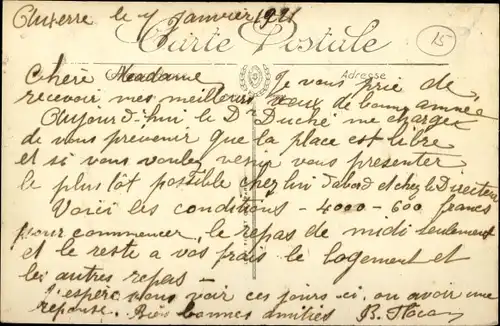 Auxerre le 7 Janvier 1921
Carte Postale
15
Adresse
Chère Madame, Je vous prie de
recevoir mes meilleurs vœux de bonne année
Aujourd'hui le Dr Duché me charge
de vous prévenir que la place est libre
et si vous voulez venir vous présenter
le plus tôt possible chez lui d'abord et chez le Directeur
Voici les conditions - 4000 - 600 francs
pour commencer, le repas de midi seulement
et le reste à vos frais le logement et
les autres repas -
J'espère vous voir ces jours-ci, ou avoir une
réponse. Bien bonnes amitiés B.